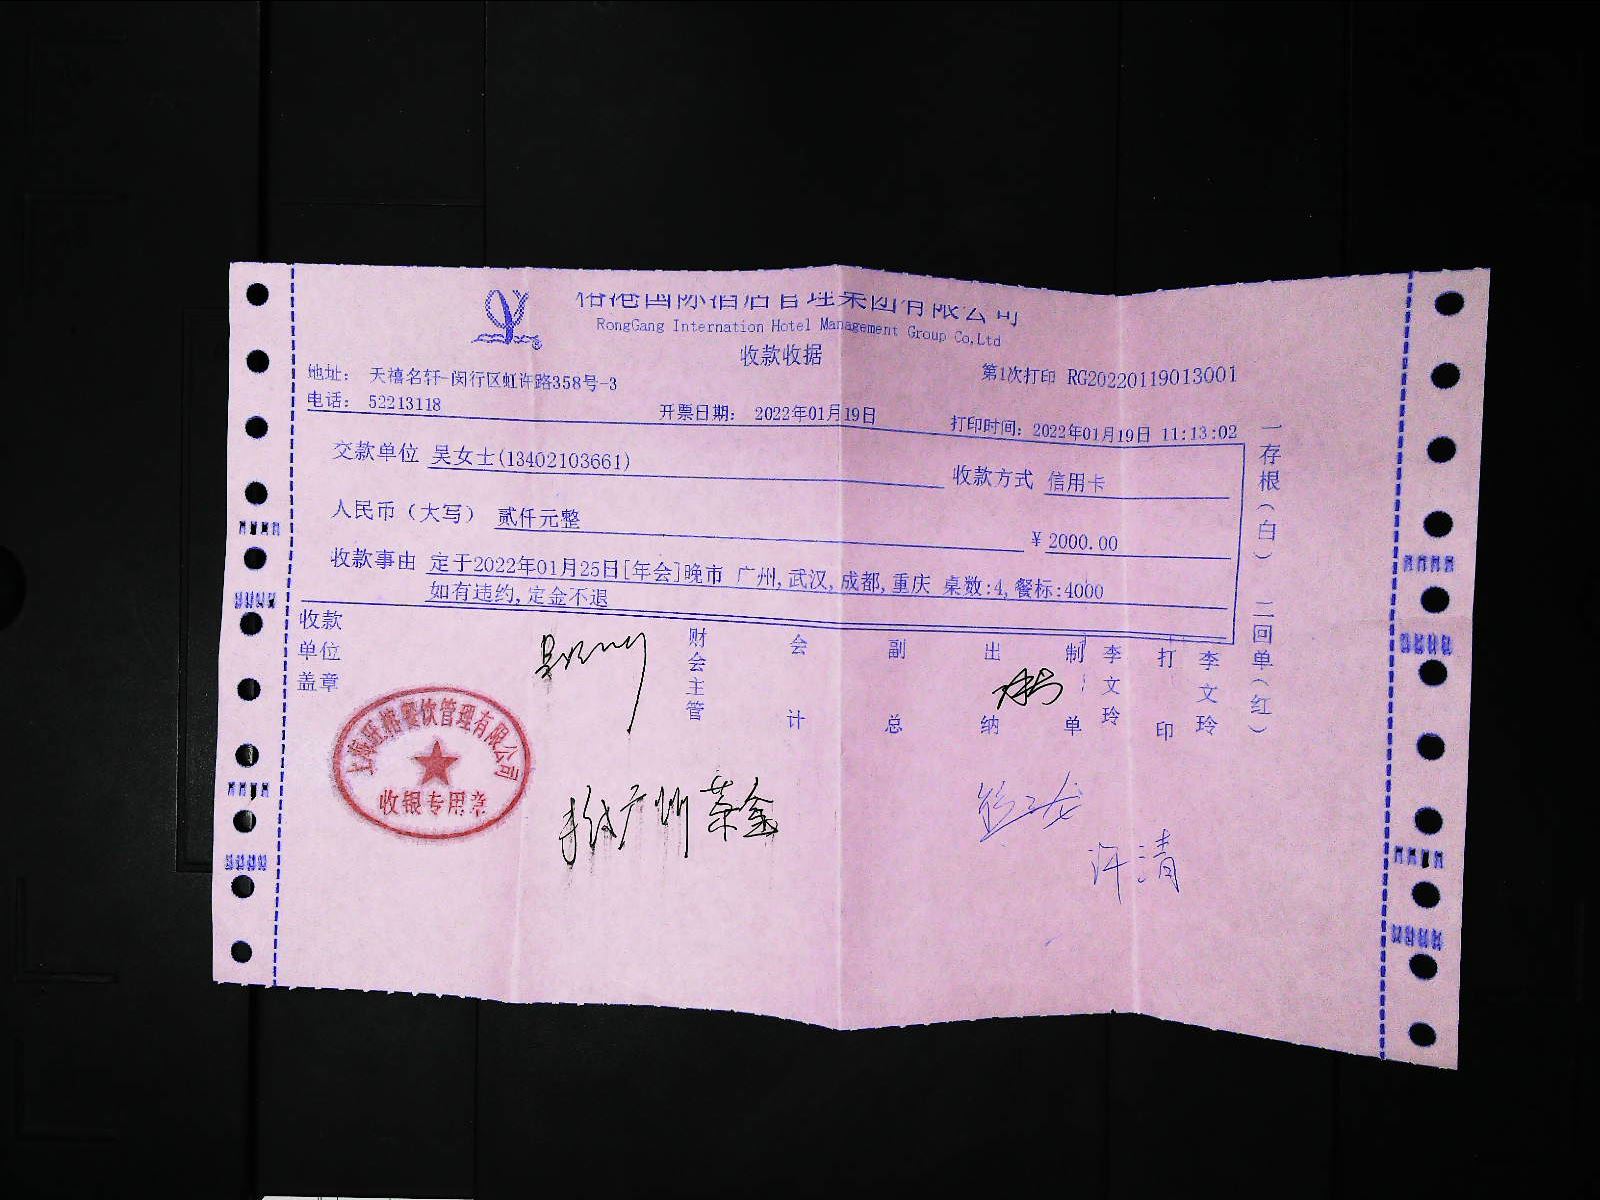 国际酒店管理集团有限公司
RongGang Internation Hotel Management Group Co,Ltd
收款收据
地址： 天禧名轩-闵行区虹许路358号-3
第1次打印 RG20220119013001
电话： 52213118
开票日期： 2022年01月19日
打印时间：2022年01月19日 11:13:02
交款单位 吴女士(13402103661)
收款方式 信用卡
人民币（大写） 贰仟元整
￥2000.00
收款事由 定于2022年01月25日[年会]晚市 广州,武汉,成都,重庆 桌数:4,餐标:4000
如有违约,定金不退
一存根（白） 二回单（红）
收款单位盖章
财会主管
会计
副总
出纳
制单
李文玲
打印
李文玲
餐饮管理有限公司
收银专用章
广州
许清